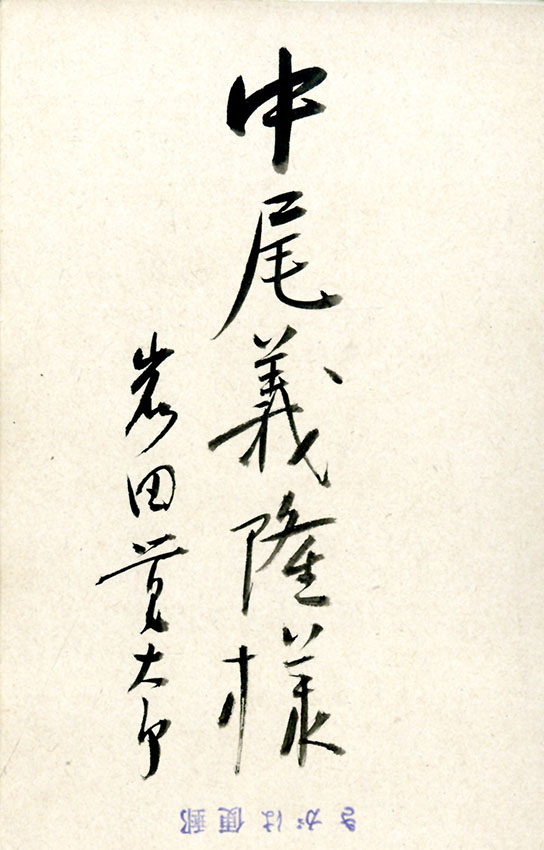 中尾義隆様
岩田覚太郎
きがは便郵